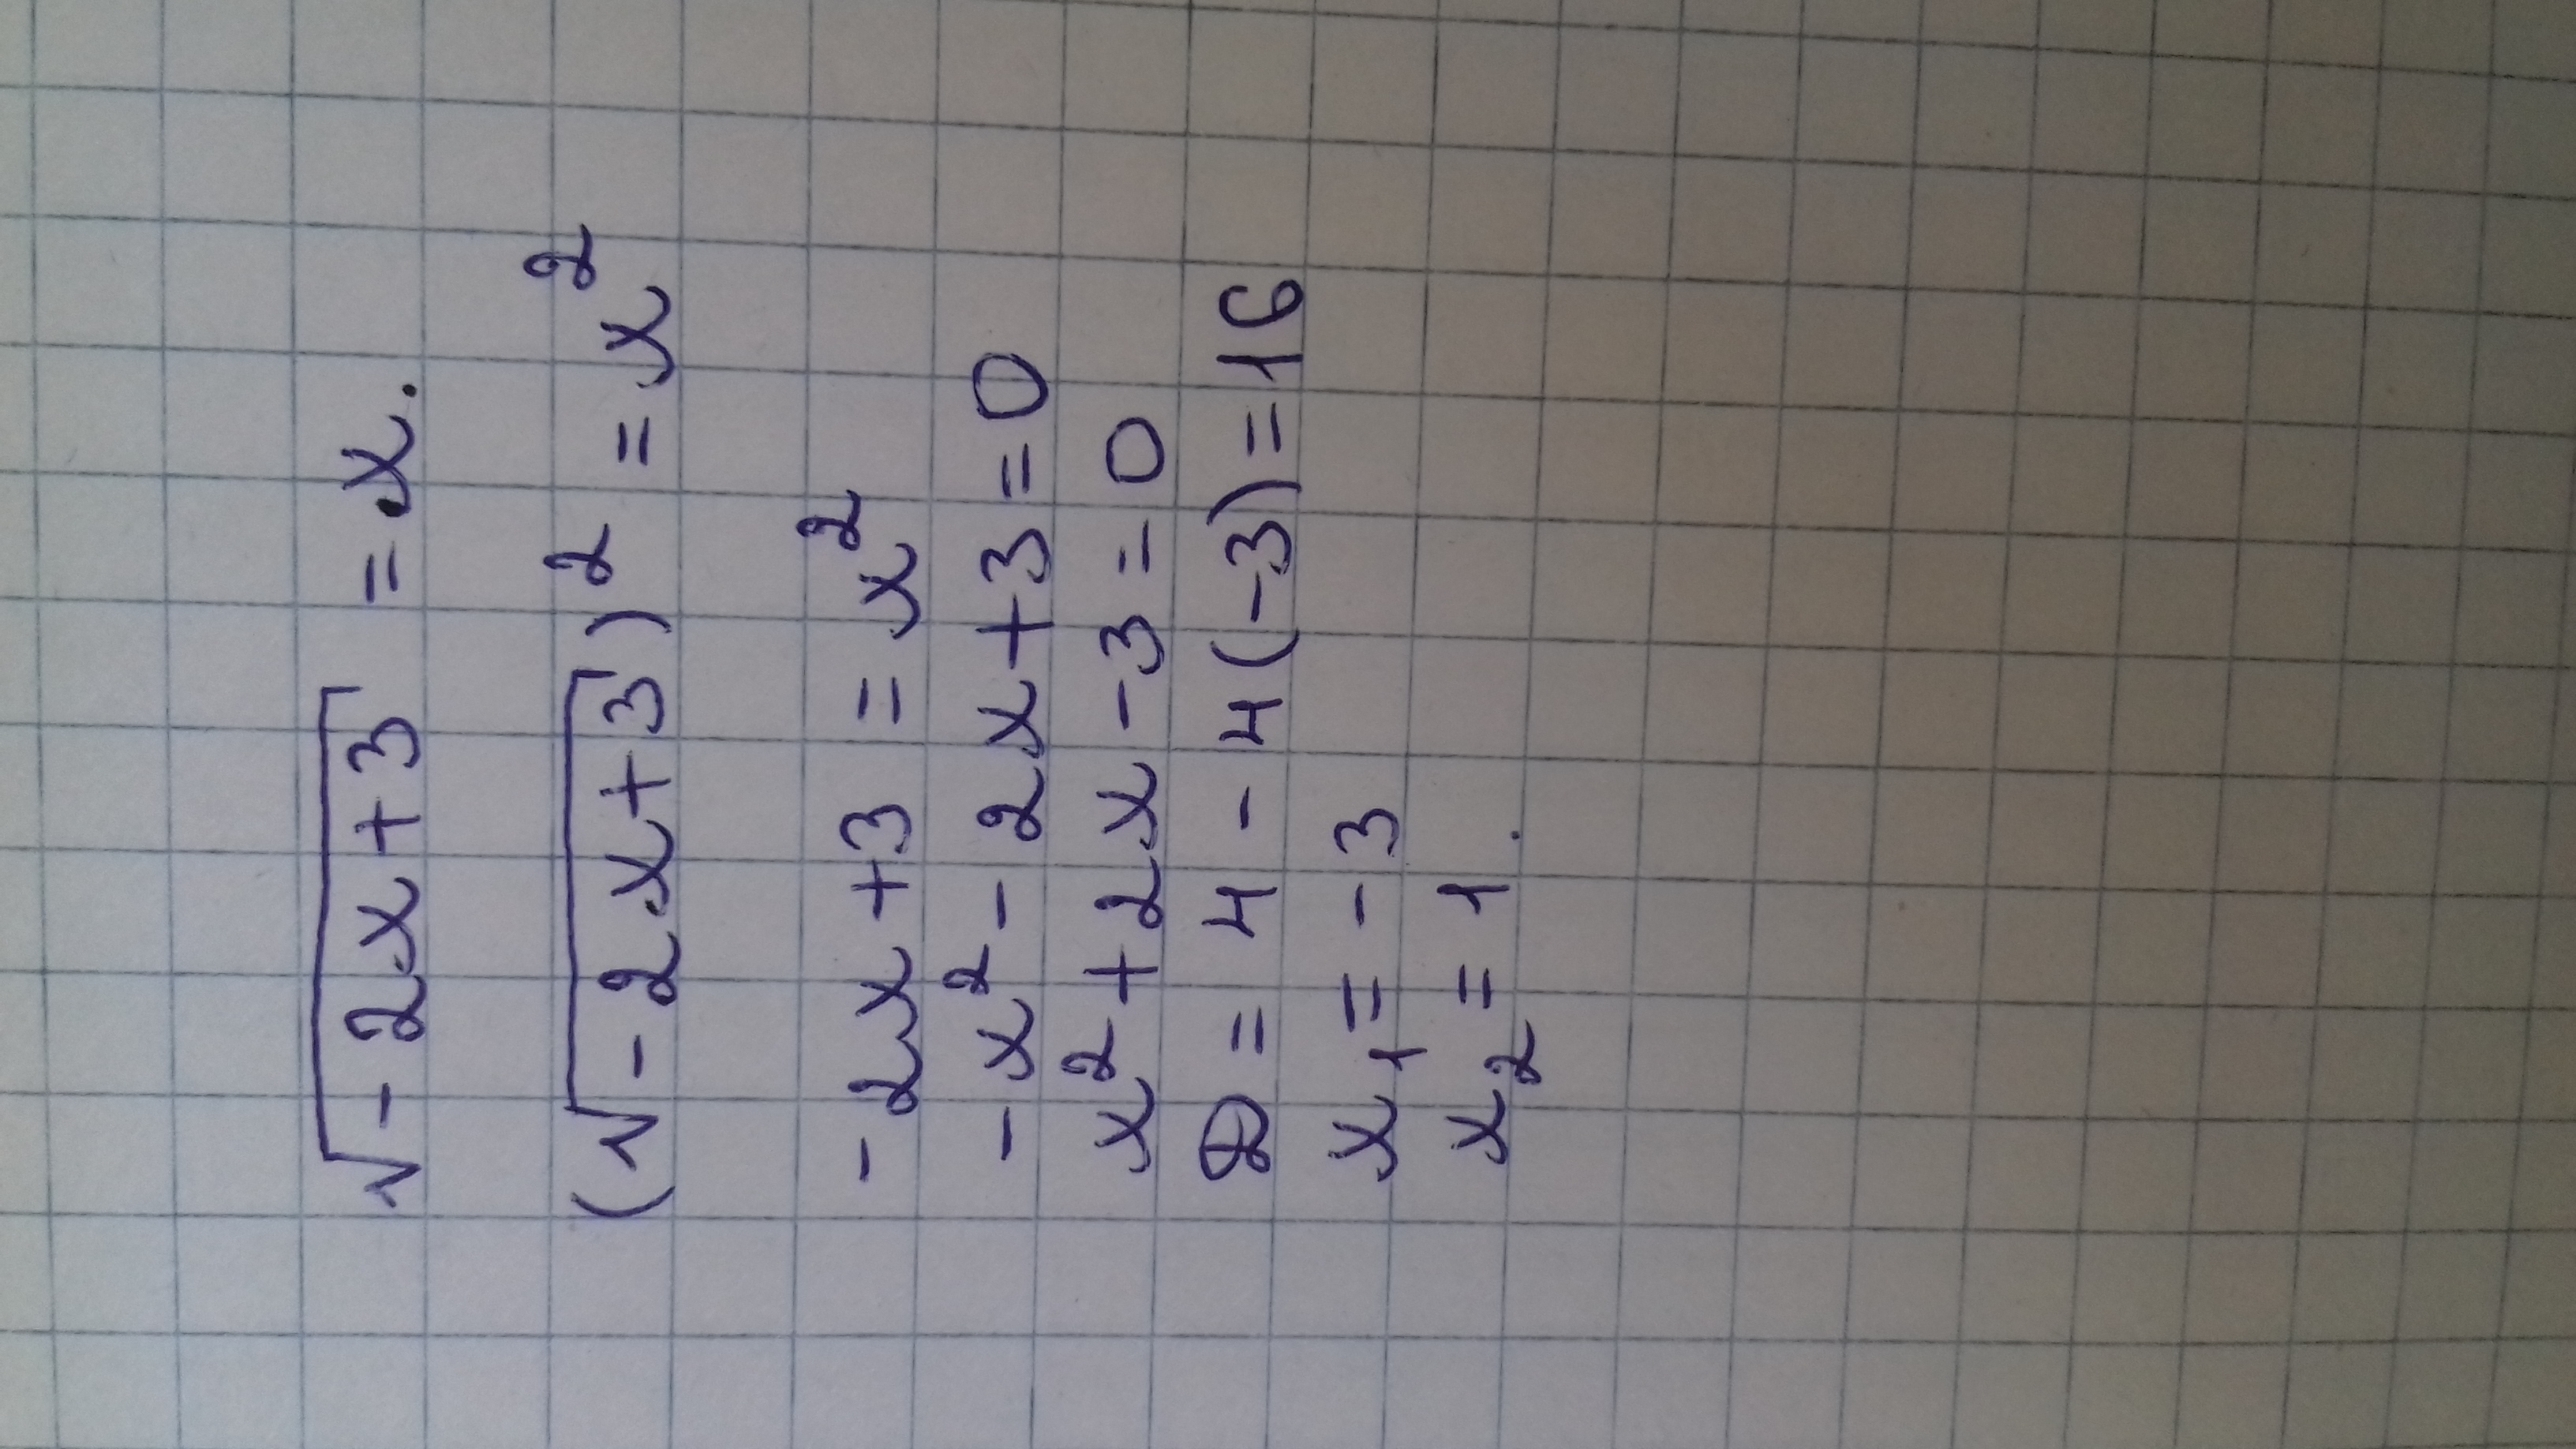 √-2x+3 = x.
(√-2x+3)² = x²
-2x+3 = x²
-x²-2x+3=0
x²+2x-3=0
D=4-4(-3)=16
x₁=-3
x₂=1.